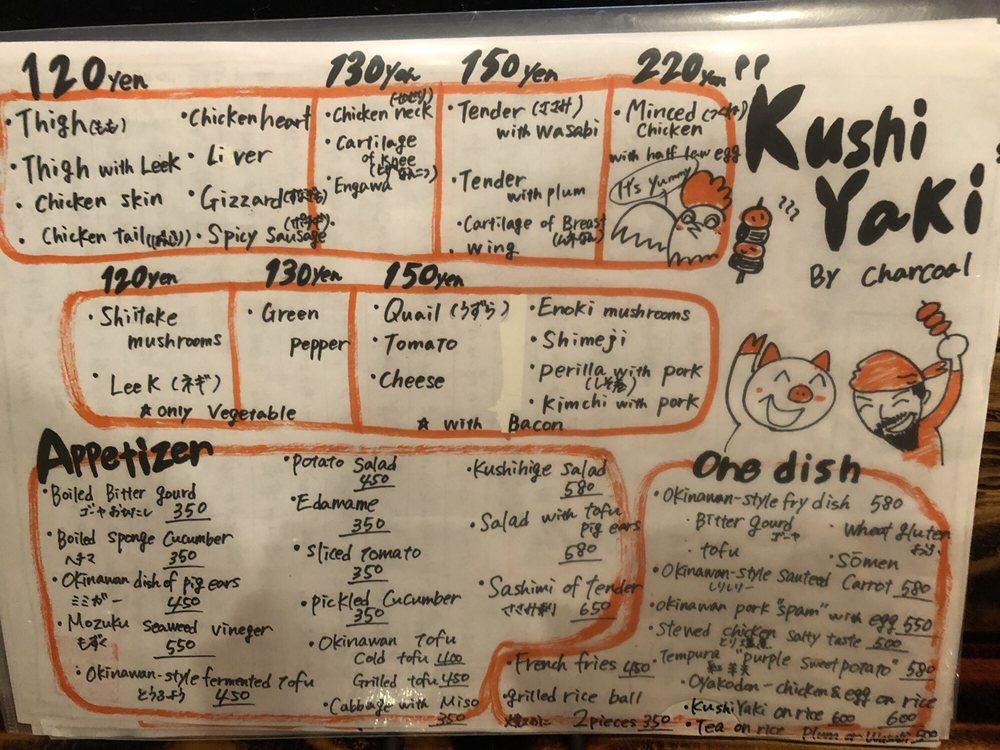 120yen
130yen
150yen
220yen
"Kushi
Yaki
By charcoal
・Thigh(もも)
・Chicken heart
・Thigh with Leek
・Liver
・Chicken skin
・Gizzard
・Chicken tail
・Spicy Sausage
・Chicken neck
・Cartilage
of Knee
・Engawa
・Tender (ささみ)
with wasabi
・Tender
with plum
・Cartilage of Breast
・wing
・Minced (つくね)
Chicken
with half raw egg
It's Yummy
120yen
130yen
150yen
・Shiitake
mushrooms
・Leek (ネギ)
☆ only Vegetable
・Green
pepper
・Quail (うずら)
・Tomato
・Cheese
・Enoki mushrooms
・Shimeji
・perilla with pork
・Kimchi with pork
☆ with Bacon
Appetizer
・Boiled Bitter gourd
350
・Boiled sponge cucumber
ヘチマ 350
・Okinawan dish of pig ears
ミミガー 450
・Mozuku seaweed vineger
もずく 550
・Okinawan-style fermented tofu
とうふよう 450
・Potato Salad
450
・Edamame
350
・sliced tomato
350
・pickled cucumber
350
・Okinawan Tofu
Cold tofu 400
Grilled tofu 450
・Cabbage with Miso
350
・Kushihige salad
580
・Salad with tofu
pig ears
680
・Sashimi of tender
650
・French fries 450
・grilled rice ball
2 pieces 350
One dish
・Okinawan-style fry dish 580
・Bitter gourd
ゴーヤ
・Wheat gluten
・tofu
・Sōmen
・Okinawan-style sauteed Carrot 580
しりしりー
・Okinawan pork "spam" with egg 550
・Stewed chicken salty taste 500
・Tempura "purple sweet potato" 580
紅芋天
・Oyakodon - chicken & egg on rice
600
・Kushi Yaki on rice 600
・Tea on rice Plum or Wasabi 500